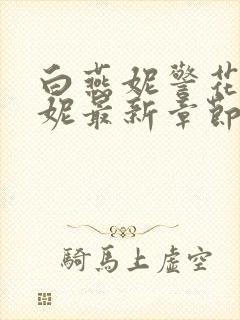 白燕妮警花
妮最新章節
騎馬上虛空